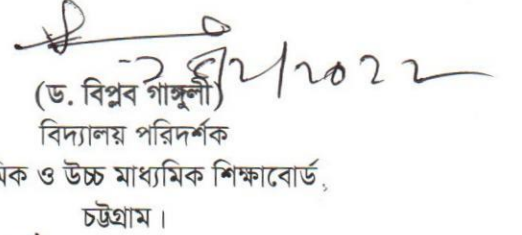 (ড. বিপ্লব গাঙ্গুলী)
বিদ্যালয় পরিদর্শক
ও উচ্চ মাধ্যমিক শিক্ষাবোর্ড,
চট্টগ্রাম।